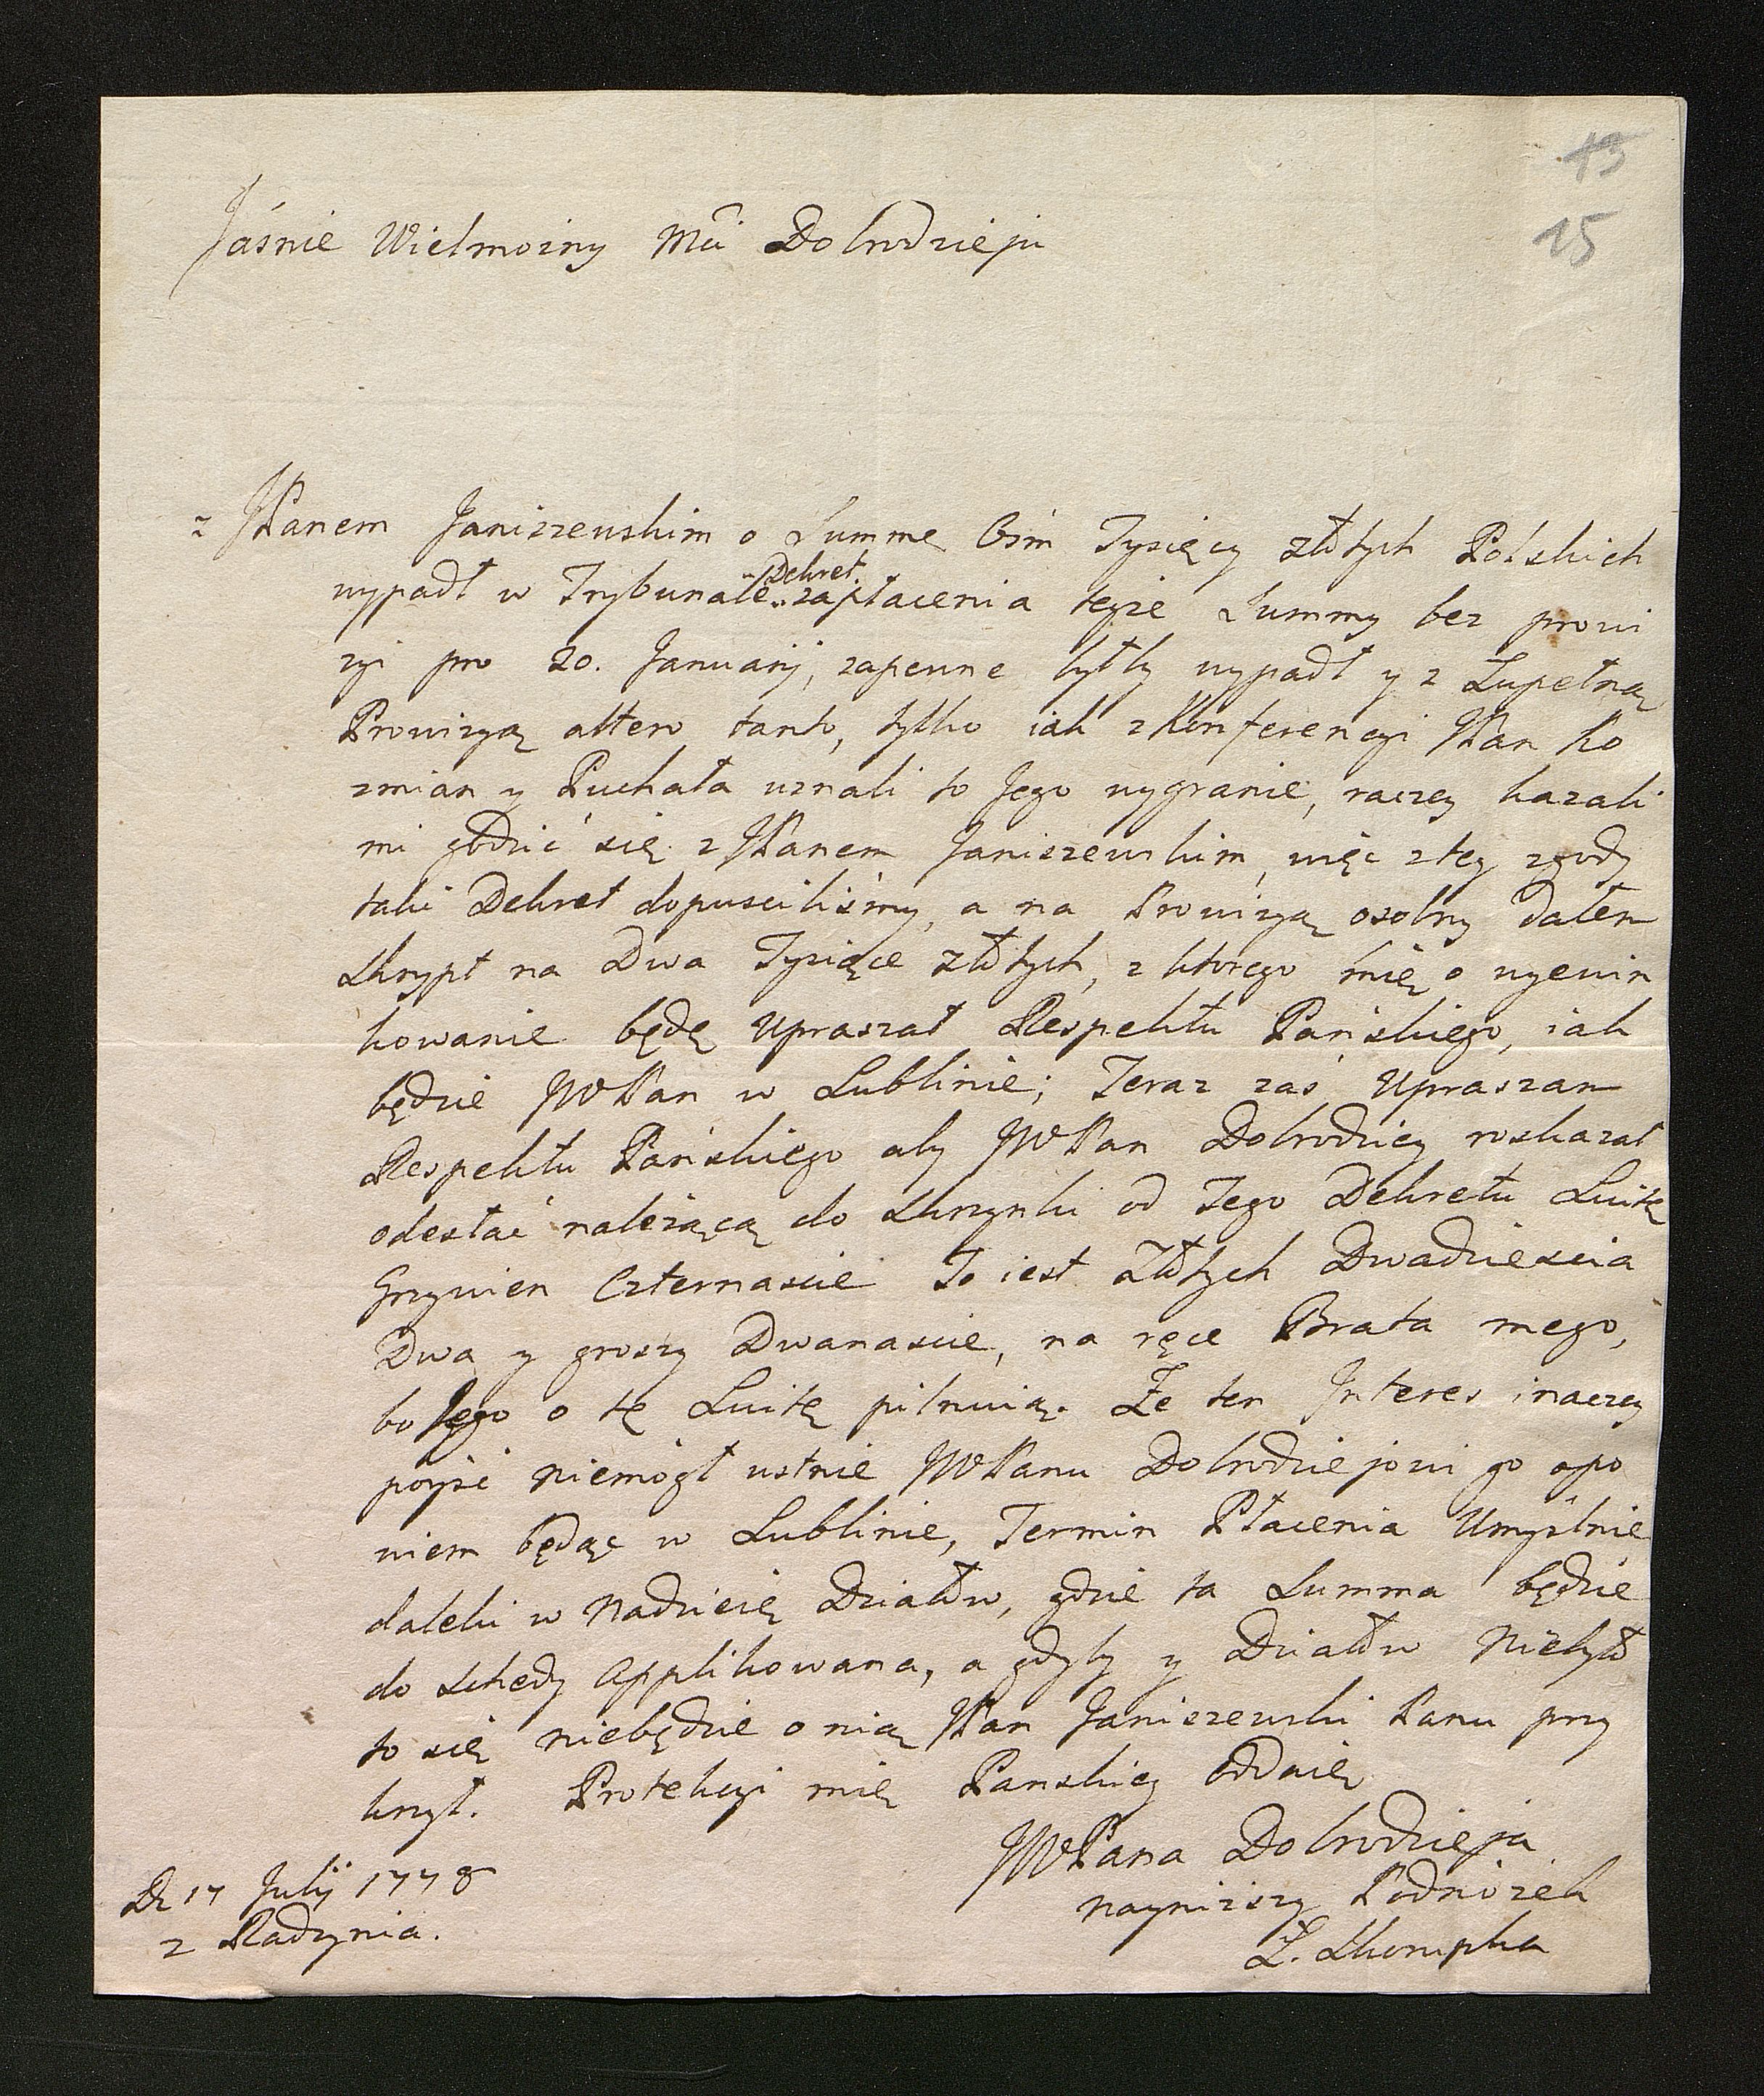 15
15
Jaśnie Wielmożny Mći Dobrodzieju
z JPanem Janiszewskim o Summę Ośm Tysięcy złłtych Polskich
wypadł w Trybunale Dekret zapłacenia teyże Summy bez prowi
zyi pro 20. Januarij, zapewne byłby wypadł y z Zupełną
Prowizyą altero tanto, tylko iak z Konferencyi JPan Ko
zmian y Puchała uznali to Jego wygranie, raczey kazali
mi godzić się z JPanem Janiszewskim, więc z tey zgody
taki Dekret dopuściliśmy, a na Prowizyą osobny dałem
Skrypt na Dwa Tysiące złłtych, z ktorego mię o wyewin
kowanie będę Upraszał Respektu Pańskiego, iak
będzie JWPan w Lublinie; Teraz zaś Upraszam
Respektu Pańskiego aby JWPan Dobrodziey roskazał
odesłać należącą do Skrzynki od Tego Dekretu Luitę
Grzywien Czternaście To iest Złłtych Dwadzieścia
Dwa y groszy Dwanaście, na ręce Brata mego,
bo Jego o tę Luitę pilnuią. Że ten Interes inaczey
poyść niemógł ustnie JWPanu Dobrodziejowi go opo
wiem będąc w Lublinie, Termin Płacenia Umyślnie
daleki w Nadzieię Działłw, gdzie ta Summa będzie
do schedy applikowana, a gdyby y Działłw niebyło
to się niebędzie o nią JPan Janiszewski Panu przy
krzył. Protekcyi mię Panskiey oddaię
JWPana Dobrodzieja
nayniższy Podnóżek
D. 17 Julij 1778
z Radzynia.